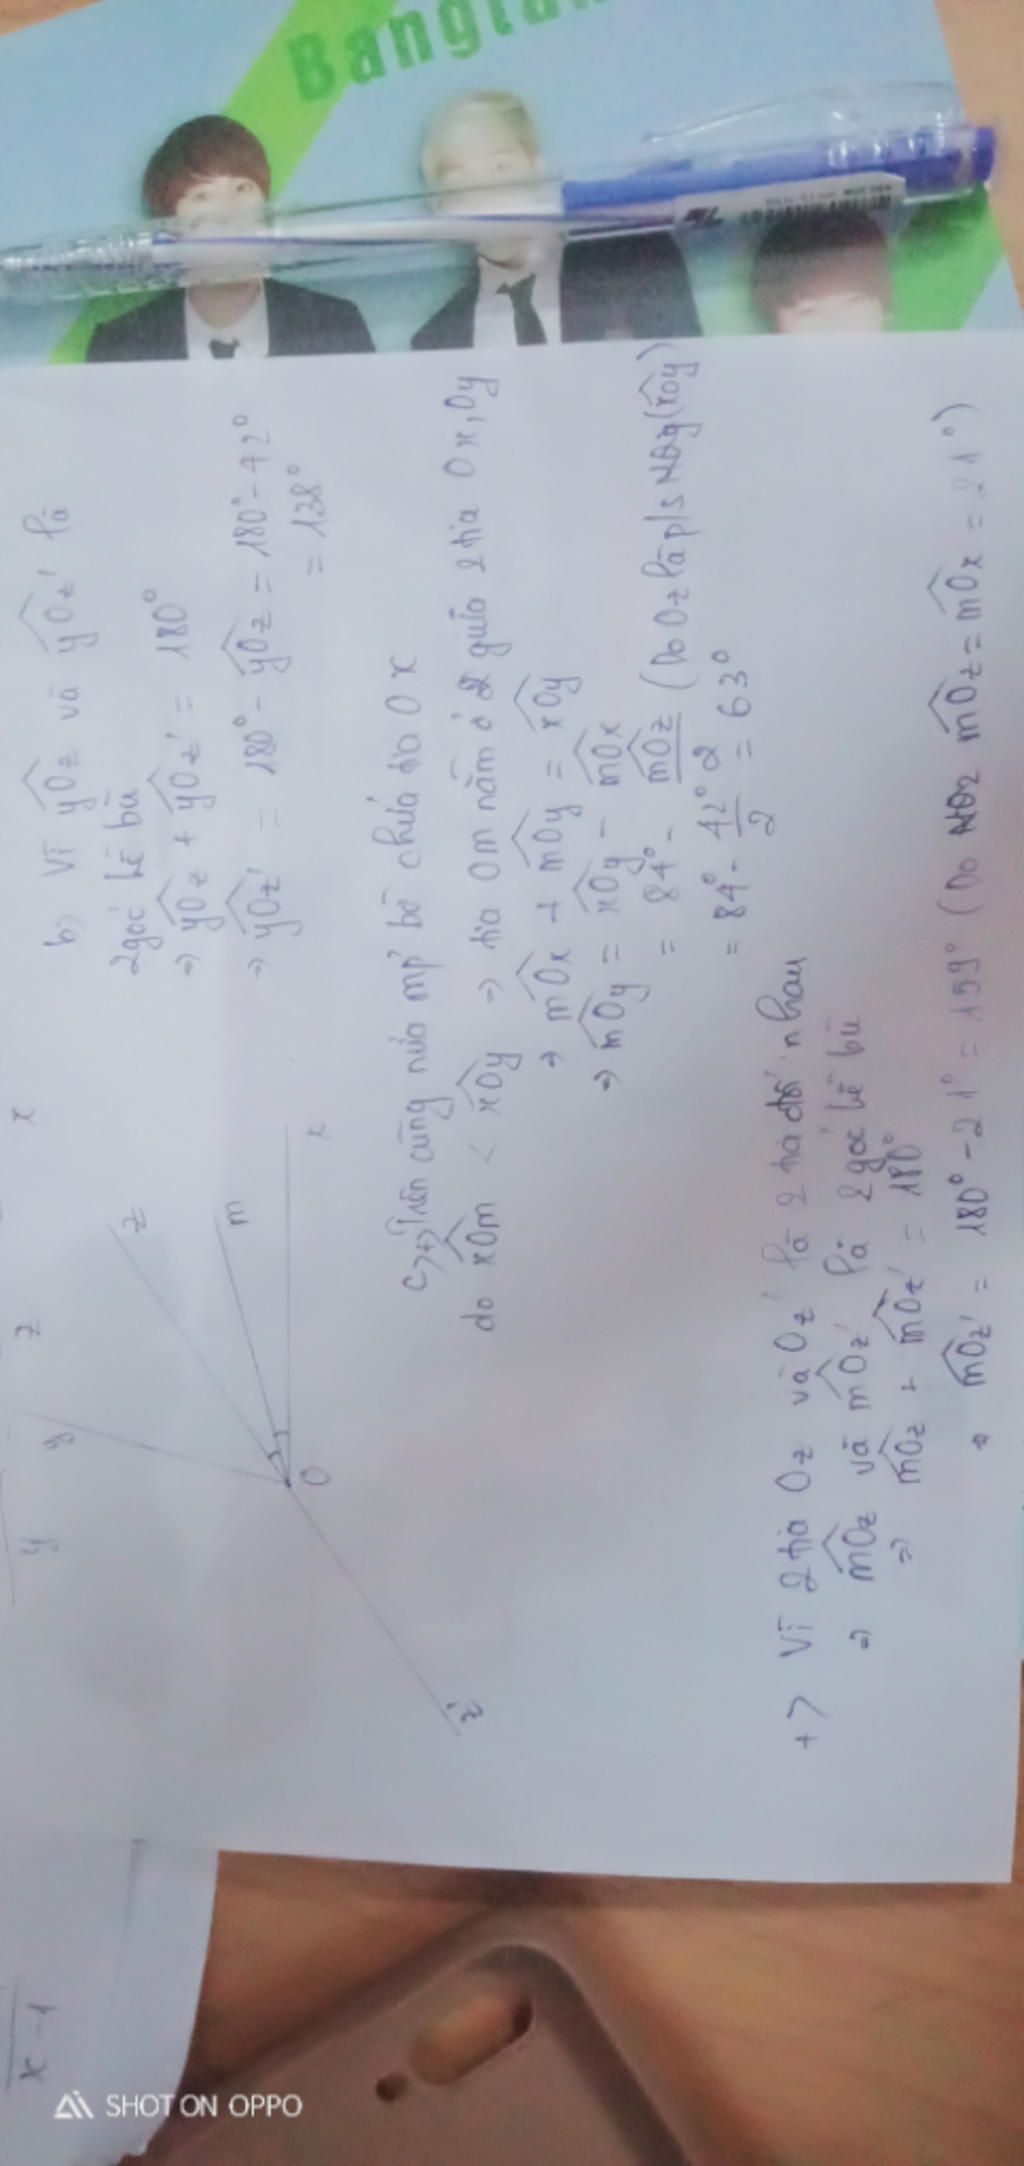 Bangtan
x
z
y
y
z
m
x
O
z'
b) Vì yOz và yOz' là
2 góc kề bù
=> yOz + yOz' = 180°
=> yOz' = 180° - yOz = 180° - 42°
= 138°
c) +) Trên cùng nửa mp bờ chứa tia Ox
do xOm < xOy => tia Om nằm ở giữa 2 tia Ox, Oy
=> mOx + mOy = xOy
=> mOy = xOy - mOx
= 84° - mOz/2 (Do Oz là p/s xOy)
= 84° - 42°/2 = 63°
+> Vì 2 tia Oz và Oz' là 2 tia đối nhau
=> mOz và mOz' là 2 góc kề bù
=> mOz + mOz' = 180°
=> mOz' = 180° - 21° = 159° (Do mOz = mOx = 21°)
x - 1
SHOT ON OPPO